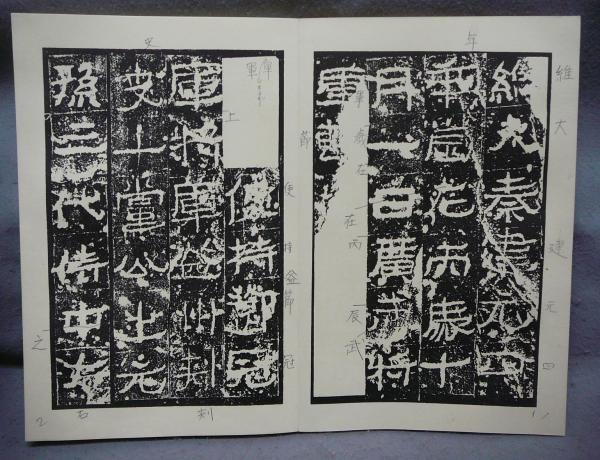 維大秦建元四
年歲在丙辰十
月一日廣武將
軍
使持節冠
軍將軍益州刺
史上黨公之元
孫三代侍中右
維大建元四
年
在丙辰武
節
使持益節冠
軍
上
史
之
右
刺
1
2